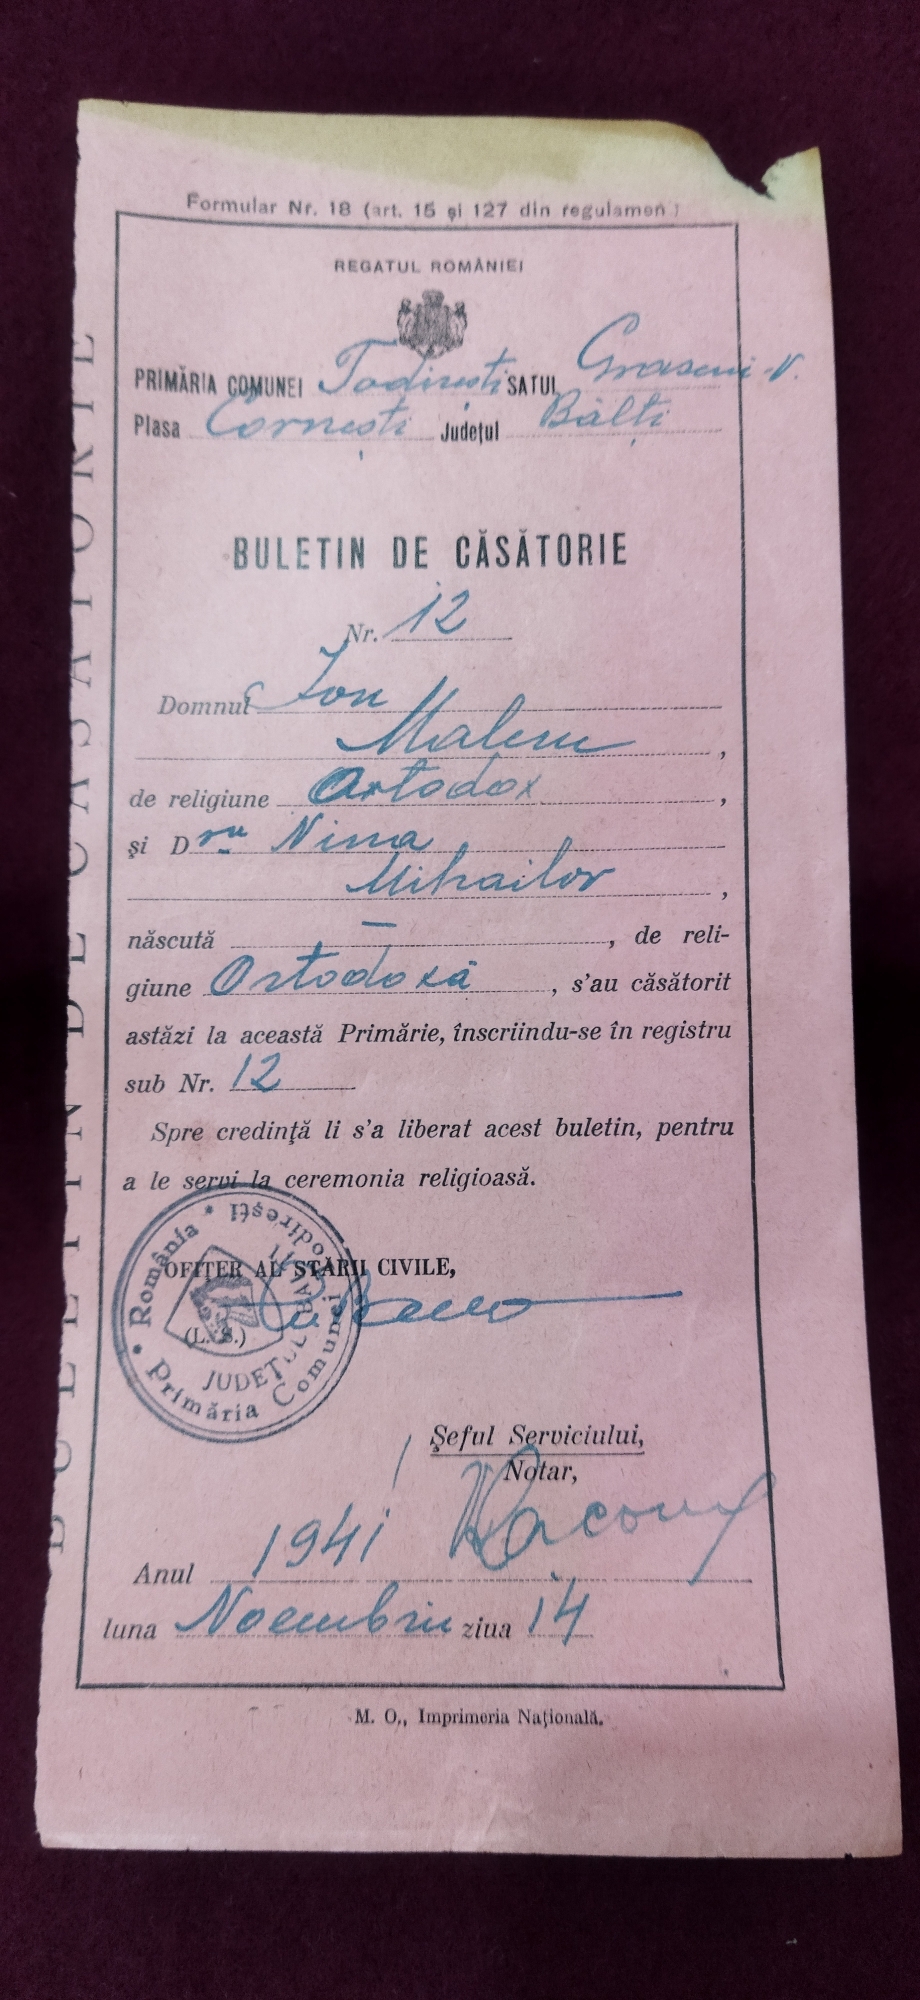 Formular Nr. 18 (art. 15 și 127 din regulamen)
REGATUL ROMÂNIEI
PRIMĂRIA COMUNEI Todirești SATUL Graseni-V.
Plasa Cornești Județul Bălți
BULETIN DE CĂSĂTORIE
Nr. 12
Domnul Ion
Maleru,
de religiune Ortodox,
și D ra Nina
Mihailov,
născută —, de reli-
giune Ortodoxă, s'au căsătorit
astăzi la această Primărie, înscriindu-se în registru
sub Nr. 12
Spre credință li s'a liberat acest buletin, pentru
a le servi la ceremonia religioasă.
OFIȚER AL STĂRII CIVILE,
(L. S.)
România * Primăria Comunei Todirești *
JUDEȚUL BĂLȚI
Șeful Serviciului,
Notar,
Anul 1941
luna Noembrie ziua 14
M. O., Imprimeria Națională.
BULETIN DE CĂSĂTORIE